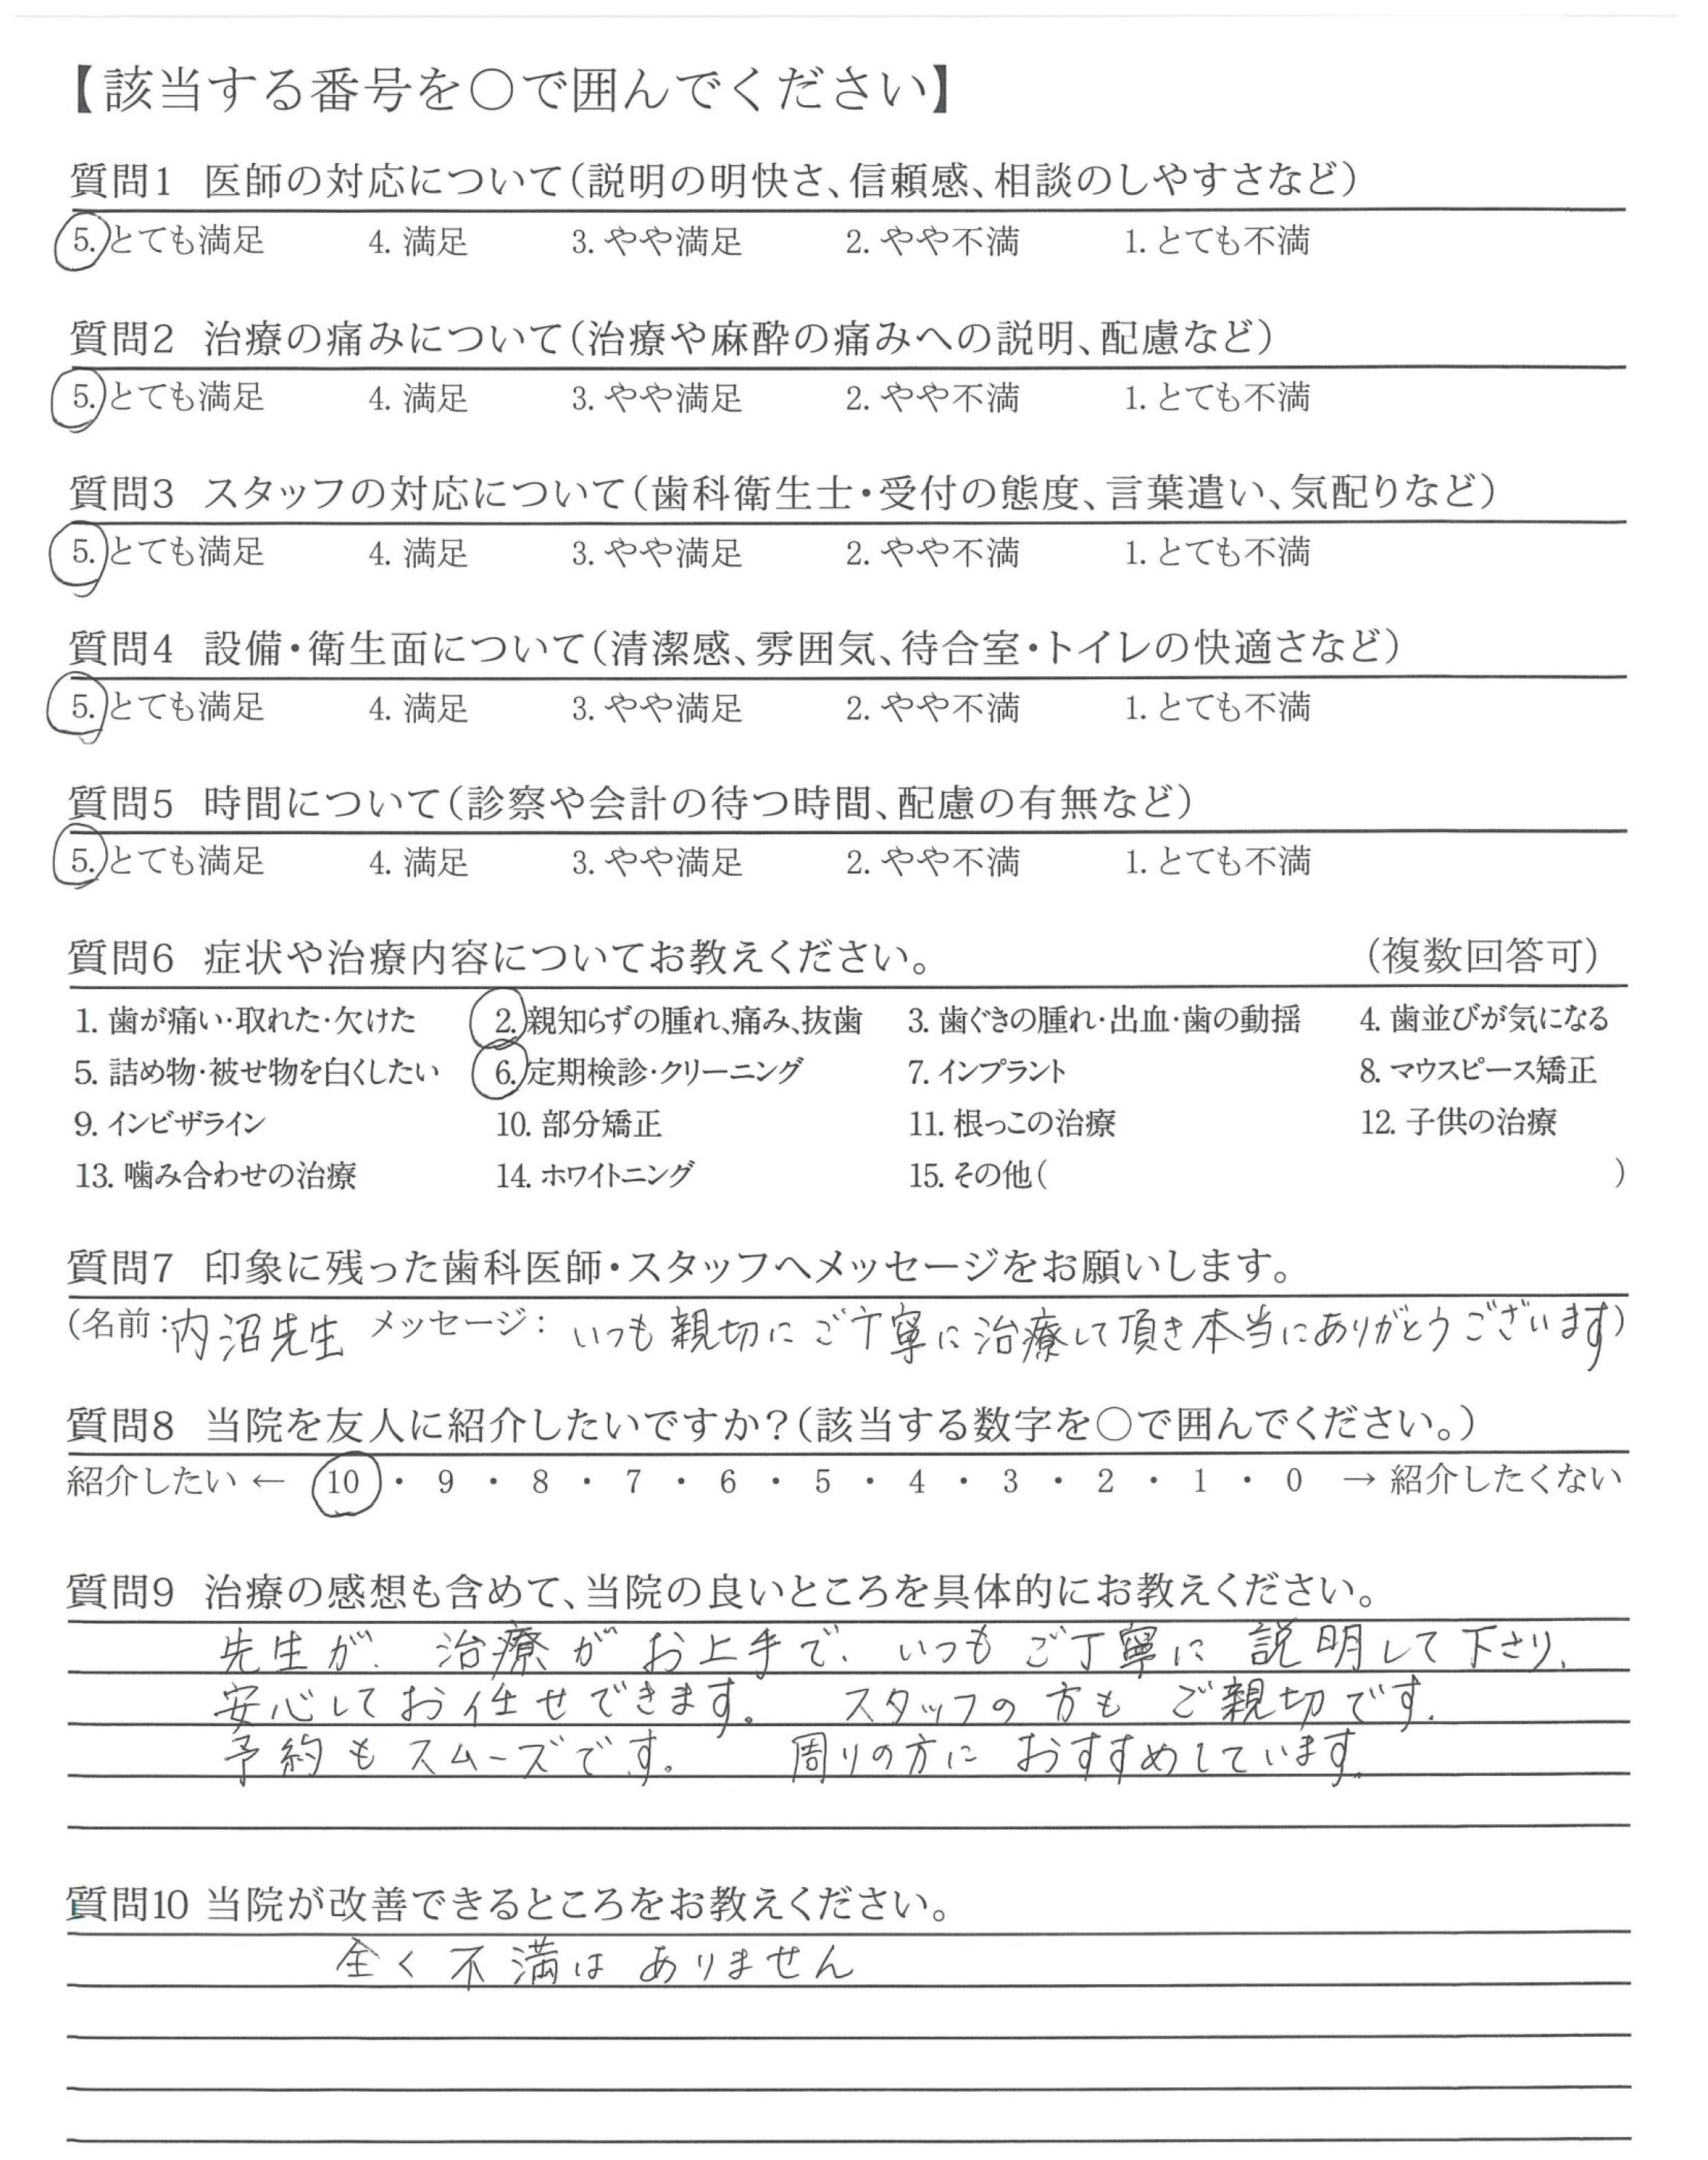 【該当する番号を○で囲んでください】
質問1 医師の対応について(説明の明快さ、信頼感、相談のしやすさなど)
5. とても満足 4. 満足 3. やや満足 2. やや不満 1. とても不満
質問2 治療の痛みについて(治療や麻酔の痛みへの説明、配慮など)
5. とても満足 4. 満足 3. やや満足 2. やや不満 1. とても不満
質問3 スタッフの対応について(歯科衛生士・受付の態度、言葉遣い、気配りなど)
5. とても満足 4. 満足 3. やや満足 2. やや不満 1. とても不満
質問4 設備・衛生面について(清潔感、雰囲気、待合室・トイレの快適さなど)
5. とても満足 4. 満足 3. やや満足 2. やや不満 1. とても不満
質問5 時間について(診察や会計の待つ時間、配慮の有無など)
5. とても満足 4. 満足 3. やや満足 2. やや不満 1. とても不満
質問6 症状や治療内容についてお教えください。 (複数回答可)
1. 歯が痛い・取れた・欠けた 2. 親知らずの腫れ、痛み、抜歯 3. 歯ぐきの腫れ・出血・歯の動揺 4. 歯並びが気になる
5. 詰め物・被せ物を白くしたい 6. 定期検診・クリーニング 7. インプラント 8. マウスピース矯正
9. インビザライン 10. 部分矯正 11. 根っこの治療 12. 子供の治療
13. 噛み合わせの治療 14. ホワイトニング 15. その他( )
質問7 印象に残った歯科医師・スタッフへメッセージをお願いします。
(名前:内沼先生 メッセージ: いつも親切にご丁寧に治療して頂き本当にありがとうございます)
質問8 当院を友人に紹介したいですか?(該当する数字を○で囲んでください。)
紹介したい ← 10 ・ 9 ・ 8 ・ 7 ・ 6 ・ 5 ・ 4 ・ 3 ・ 2 ・ 1 ・ 0 → 紹介したくない
質問9 治療の感想も含めて、当院の良いところを具体的にお教えください。
先生が、治療がお上手で、いつもご丁寧に説明して下さり、
安心してお任せできます。 スタッフの方もご親切です。
予約もスムーズです。 周りの方におすすめしています。
質問10 当院が改善できるところをお教えください。
全く不満はありません